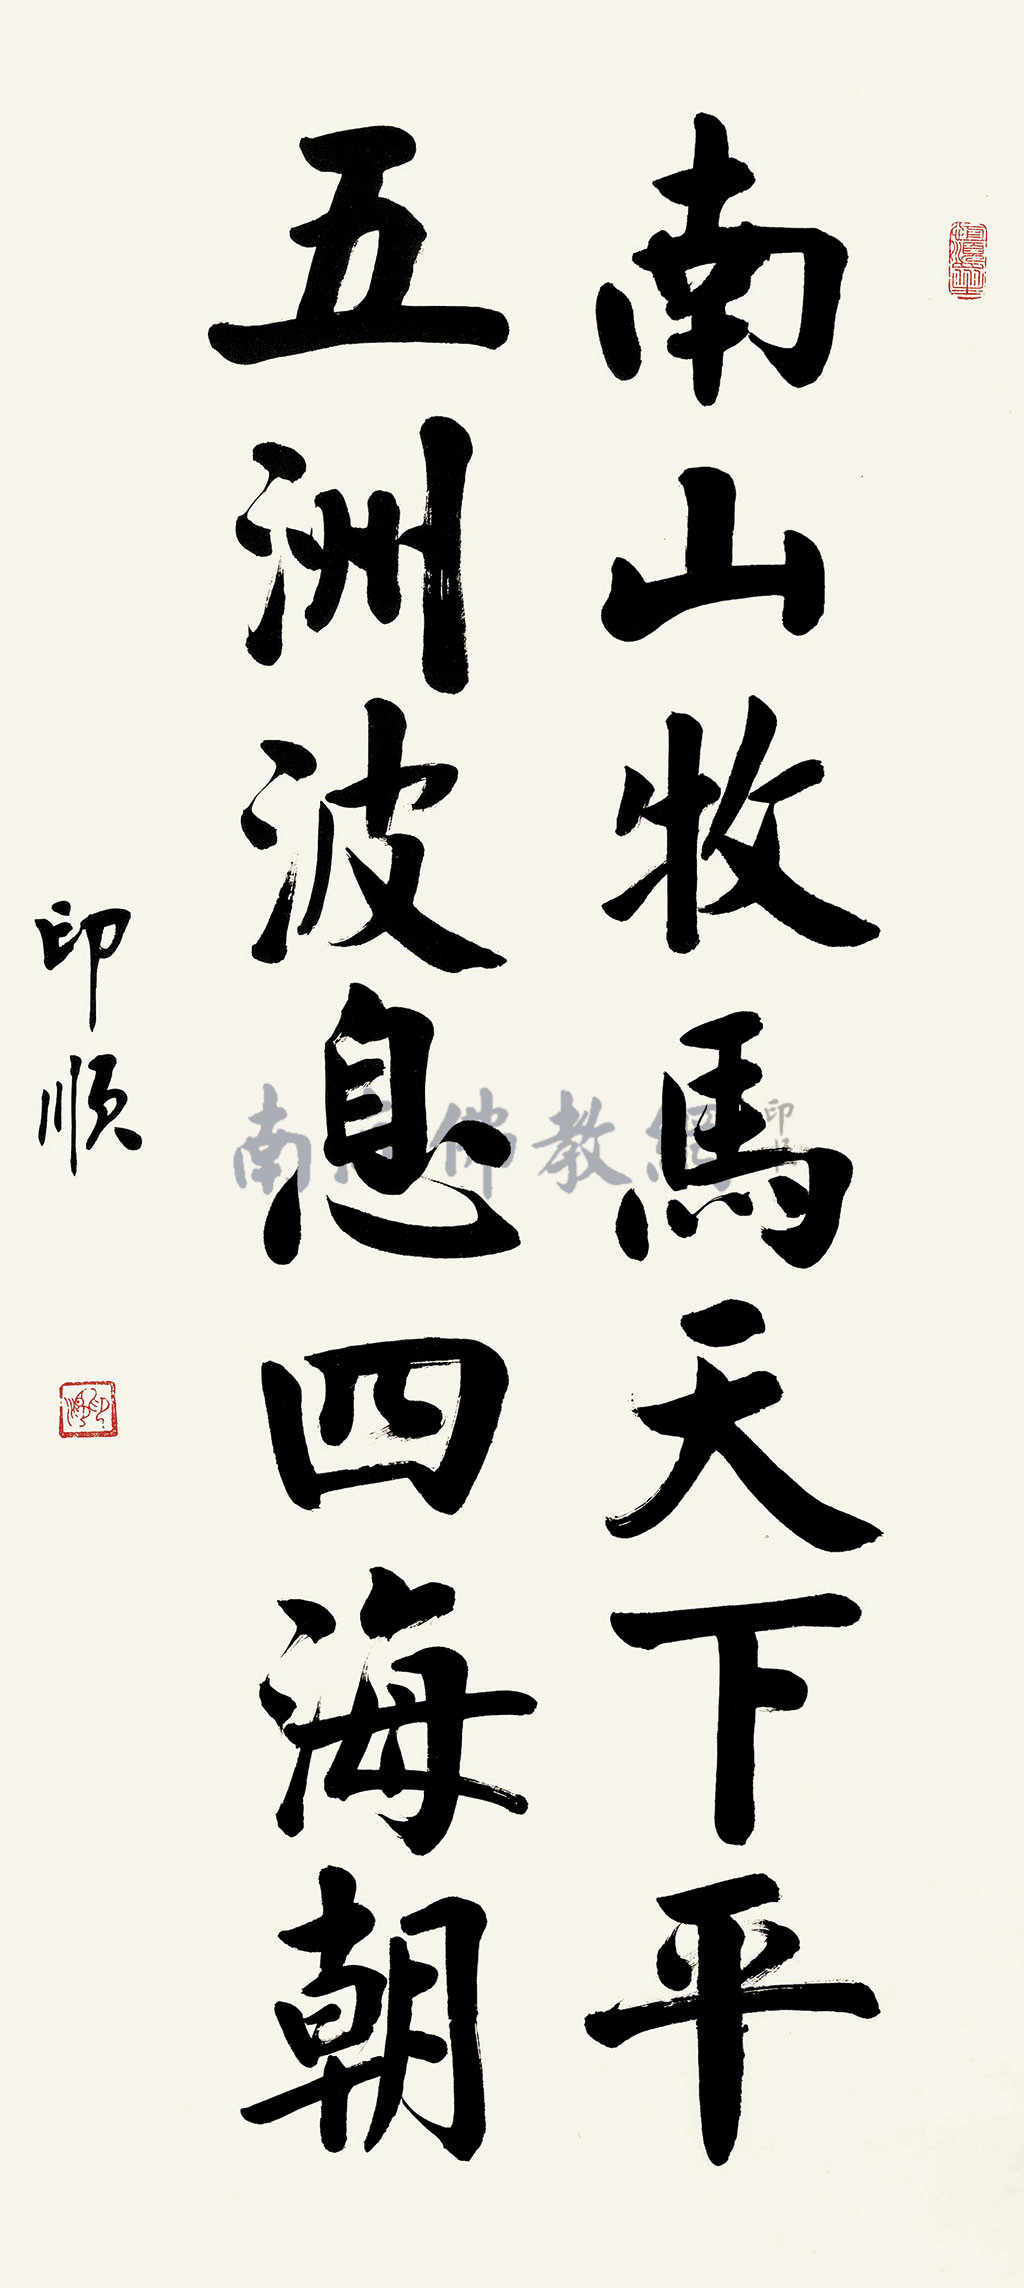 南山牧馬天下平
五洲波息四海朝
印順